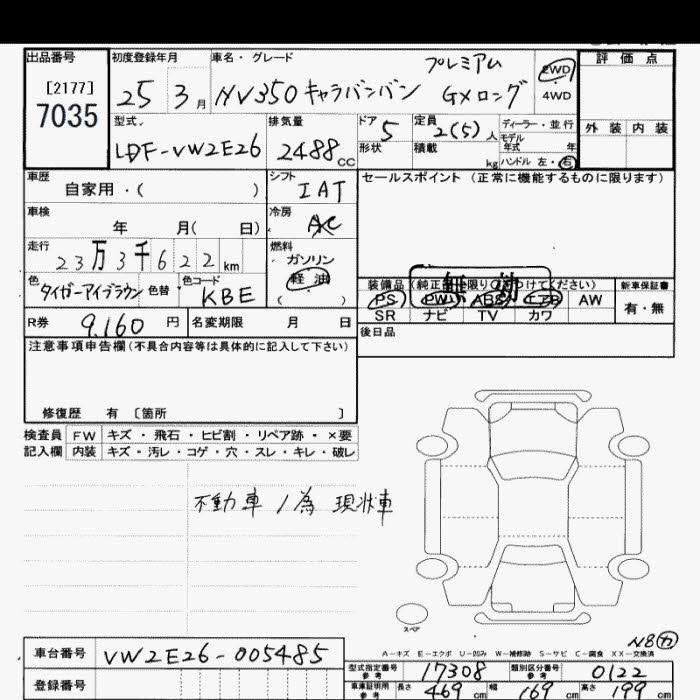 出品番号 初度登録年月 車名・グレード プレミアム 2WD 評価点
[2177]
7035 25 3月 NV350キャラバンバン GXロング 4WD
型式 排気量 ドア 5 定員 2(5)人 ディーラー・並行 外装 内装
モデル年式 年
LDF-VW2E26 2488CC 形状 積載 kg ハンドル 左・右
車歴 シフト セールスポイント(正常に機能するものに限ります)
自家用・( ) IAT
車検 冷房
年 月( 日) A/C
走行 燃料
23万3千622km ガソリン
軽油
( )
色 色替 色コード 装備品(純正 限り つけてください) 新車保証書
タイガーアイブラウン KBE PS PW ABS エアB AW 有・無
SR ナビ TV カワ
無効
R券 9,160円 名変期限 月 日 後日品
注意事項申告欄(不具合内容等は具体的に記入して下さい)
修復歴 有 〔箇所 〕
検査員 FW キズ・飛石・ヒビ割・リペア跡・×要
記入欄 内装 キズ・汚レ・コゲ・穴・スレ・キレ・破レ
不動車ノ為 現状車
スペア
N8カ
A-キズ E-エクボ U-凹み W-補修跡 S-サビ C-腐食 XX-交換済
車台番号 VW2E26-005485
型式指定番号参考 17308 類別区分番号参考 0122
登録番号 車庫証明用参考 長さ 469cm 幅 169cm 高さ 199cm